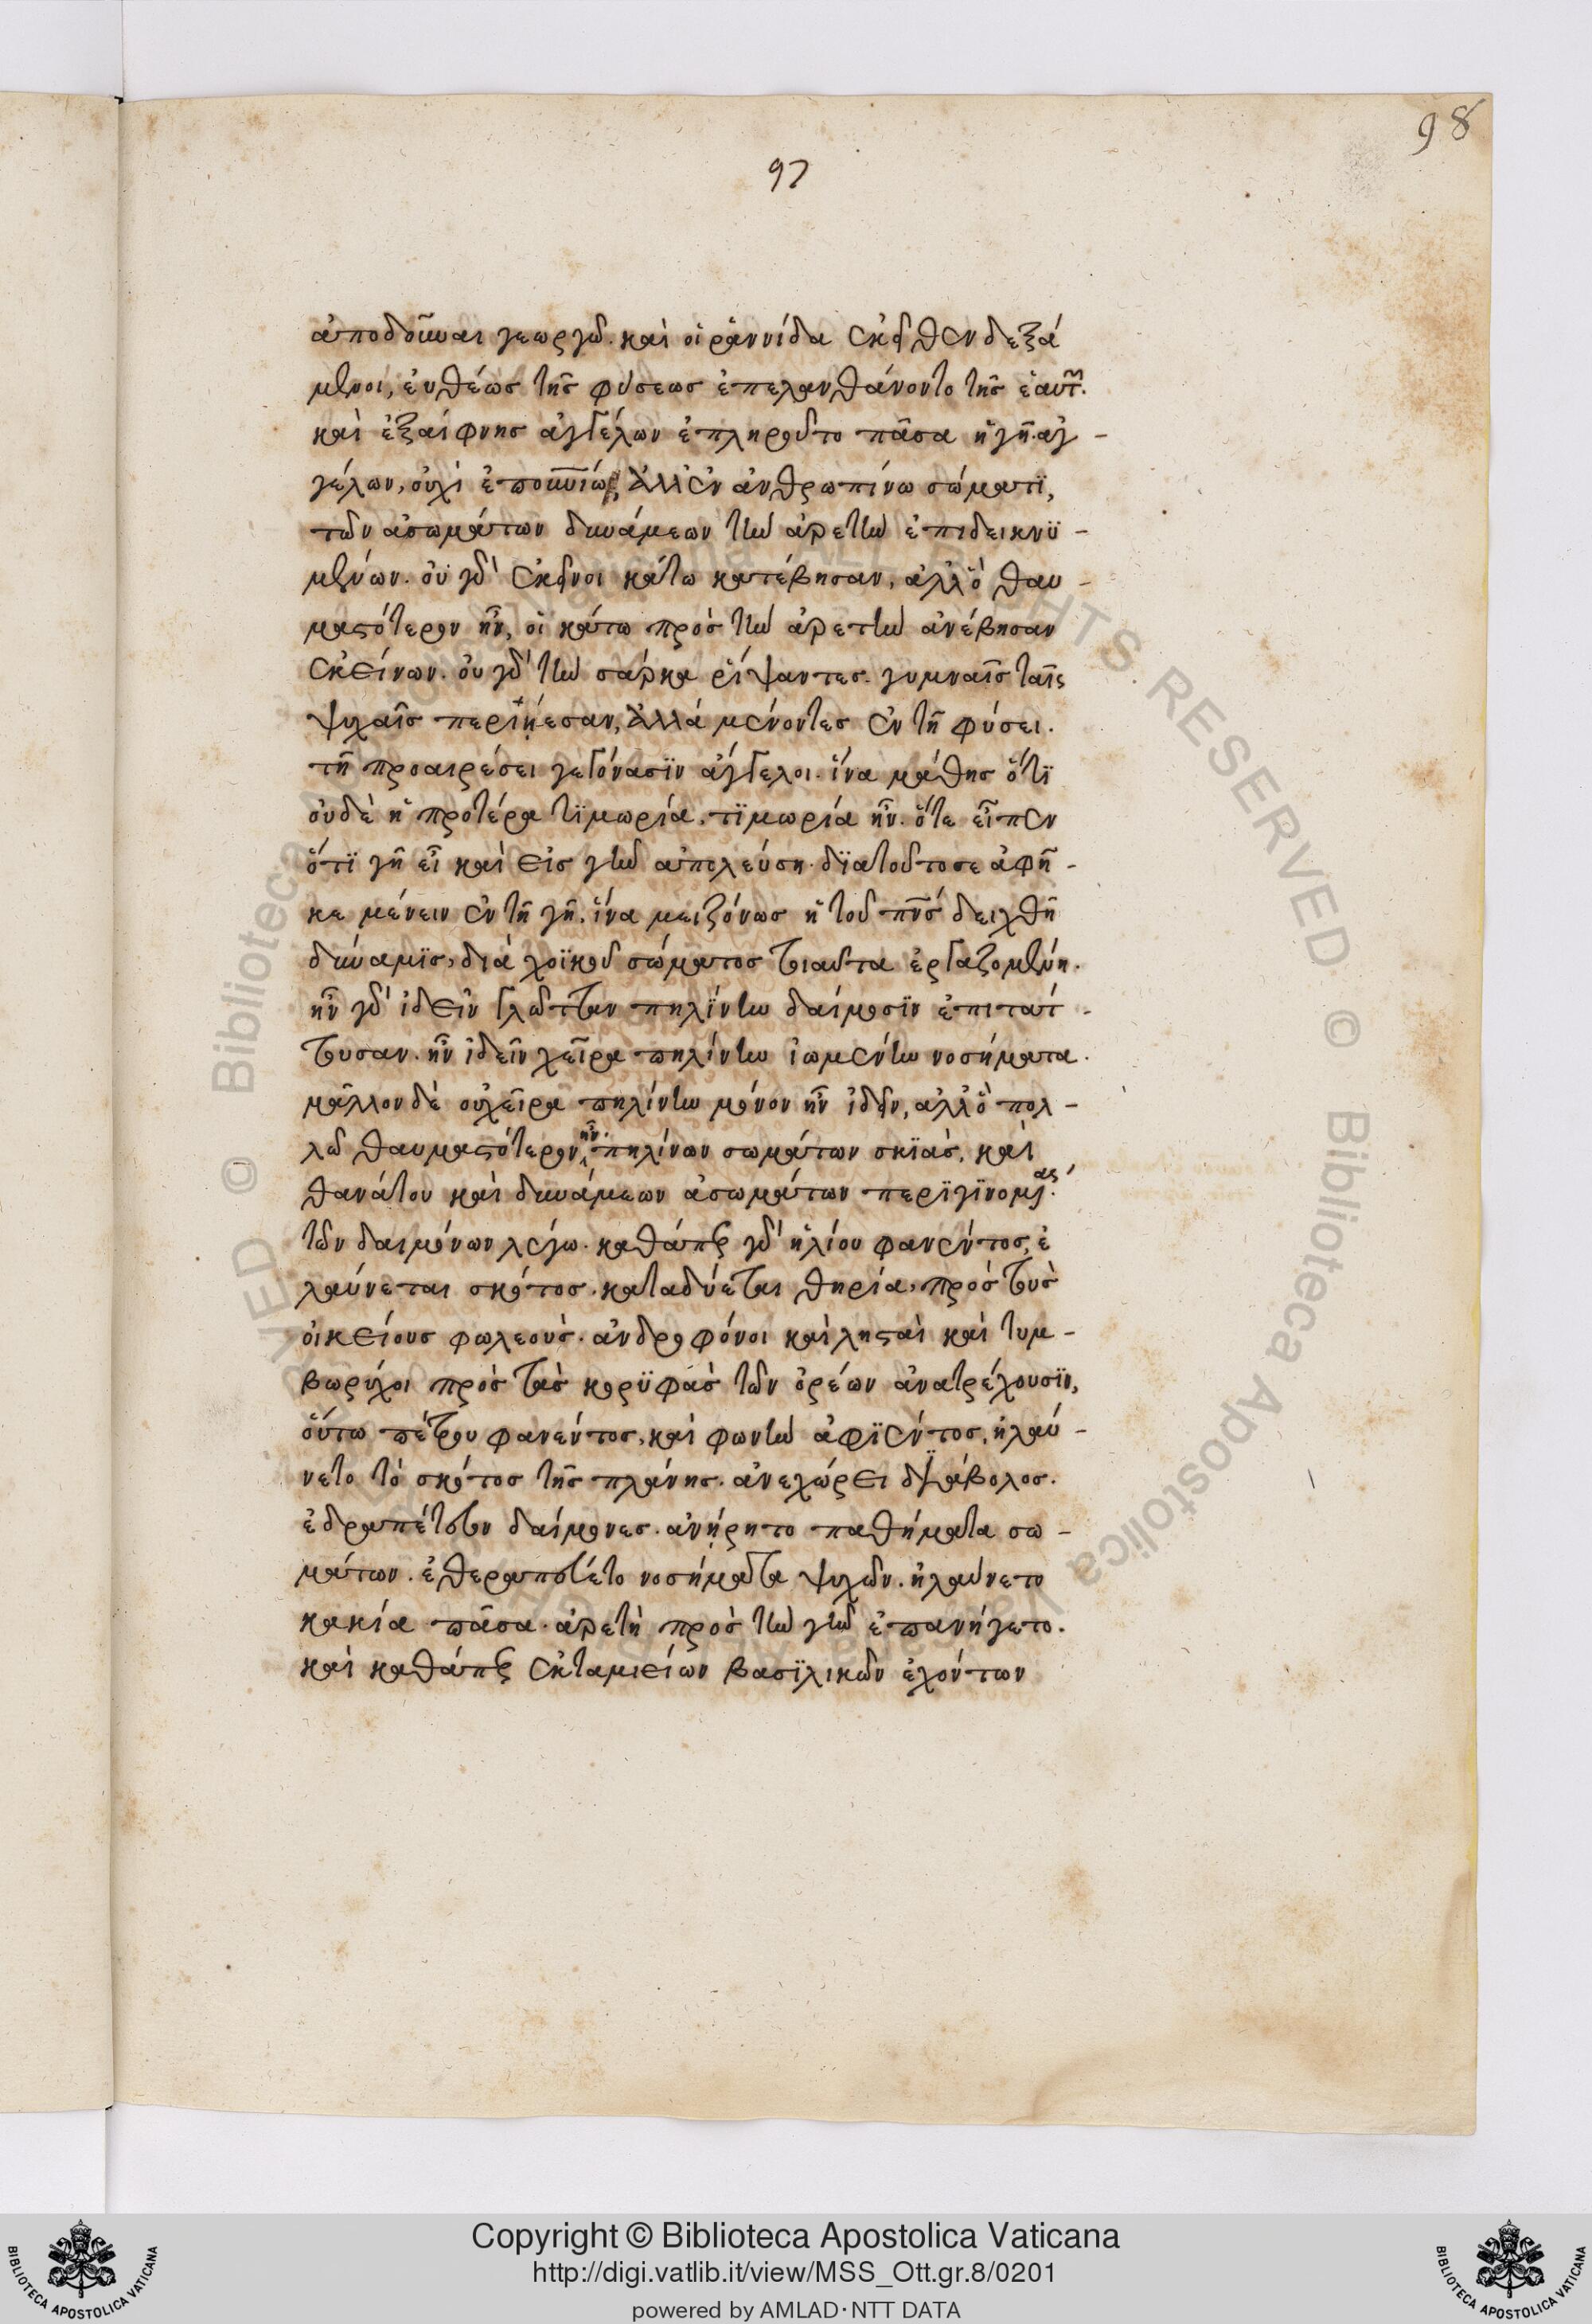 98
97
ἀποδοῦναι γεωργῶ. καὶ οἱ ῥαννίδα ἐκεῖθεν δεξά
μενοι, ἐυθέως τῆς φύσεως ἐπελανθάνοντο τῆς ἑαυτῶν.
καὶ ἐξαίφνης ἀγγέλων ἐπληροῦτο πᾶσα ἡ γῆ. ἀγ-
γέλων, οὐχὶ ἐπουνίων, ἀλλ' ἐν ἀνθρωπίνω σώματϊ,
τῶν ἀσωμάτων δυνάμεων τὴν ἀρετὴν ἐπιδεικνϋ-
μένων. οὐ γὰρ ἐκεῖνοι κάτω κατέβησαν, ἀλλ' ὃ θαυ-
μαστότερον ἦν, οἱ κάτω πρὸς τὴν ἀρετὴν ἀνέβησαν
ἐκείνων. οὐ γὰρ τὴν σάρκα ῥίψαντες. γυμναῖς ταῖς
ψυχαῖς περιήεσαν, ἀλλὰ μένοντες ἐν τῆ φύσει.
τῆ προαιρέσει γεγόνασϊν ἄγγελοι. ἵνα μάθης ὅτϊ
οὐδὲ ἡ προτέρα τϊμωρία, τϊμωρία ἦν. ὅτε εἶπεν
ὅτϊ γῆ εἶ καὶ εἰς γῆν ἀπελεύση. δϊατοῦτο σε ἀφῆ-
κε μένειν ἐν τῆ γῆ. ἵνα μειζόνως ἡ τοῦ πνς δειχθῆ
δύναμϊς, διὰ χοϊκοῦ σώματος τοιαῦτα ἐργαζομένη.
ἦν γὰρ ἰδεῖν γλῶτταν πηλϊνην δαίμοσϊν ἐπιτάτ-
τουσαν. ἦν ἰδεῖν χεῖρα πηλίνην ἰωμένην νοσήματα.
μᾶλλον δὲ οὐ χεῖρα πηλίνην μόνον ἦν ἰδεῖν, ἀλλ' ὃ πολ-
λῶ θαυμαστότερον ἦν, πηλίνων σωμάτων σκϊὰς, καὶ
θανάτου καὶ δυνάμεων ἀσωμάτων περϊγϊνομένας.
τῶν δαιμόνων λέγω. καθάπερ γὰρ ἡλίου φανέντος, ἐ
λαύνεται σκότος. καταδύεται θηρία, πρὸς τοὺς
οἰκείους φωλεοὺς. ἀνδροφόνοι καὶ λησταὶ καὶ τυμ-
βωρύχοι πρὸς τὰς κορϋφὰς τῶν ὀρέων ἀνατρέχουσϊν,
οὕτω πέτρου φανέντος, καὶ φωνὴν ἀφϊέντος, ἠλαύ-
νετο τὸ σκότος τῆς πλάνης. ἀνεχώρει διάβολος.
ἐδραπέτευον δαίμονες. ἀνήρητο παθήματα σω-
μάτων. ἐθεραπεύετο νοσήματα ψυχῶν. ἠλαύνετο
κακία πᾶσα. ἀρετὴ πρὸς τὴν γῆν ἐπανήγετο.
καὶ καθάπερ ἐκ ταμιείων βασϊλικῶν ἐχόντων
Copyright © Biblioteca Apostolica Vaticana
http://digi.vatlib.it/view/MSS_Ott.gr.8/0201
powered by AMLAD·NTT DATA